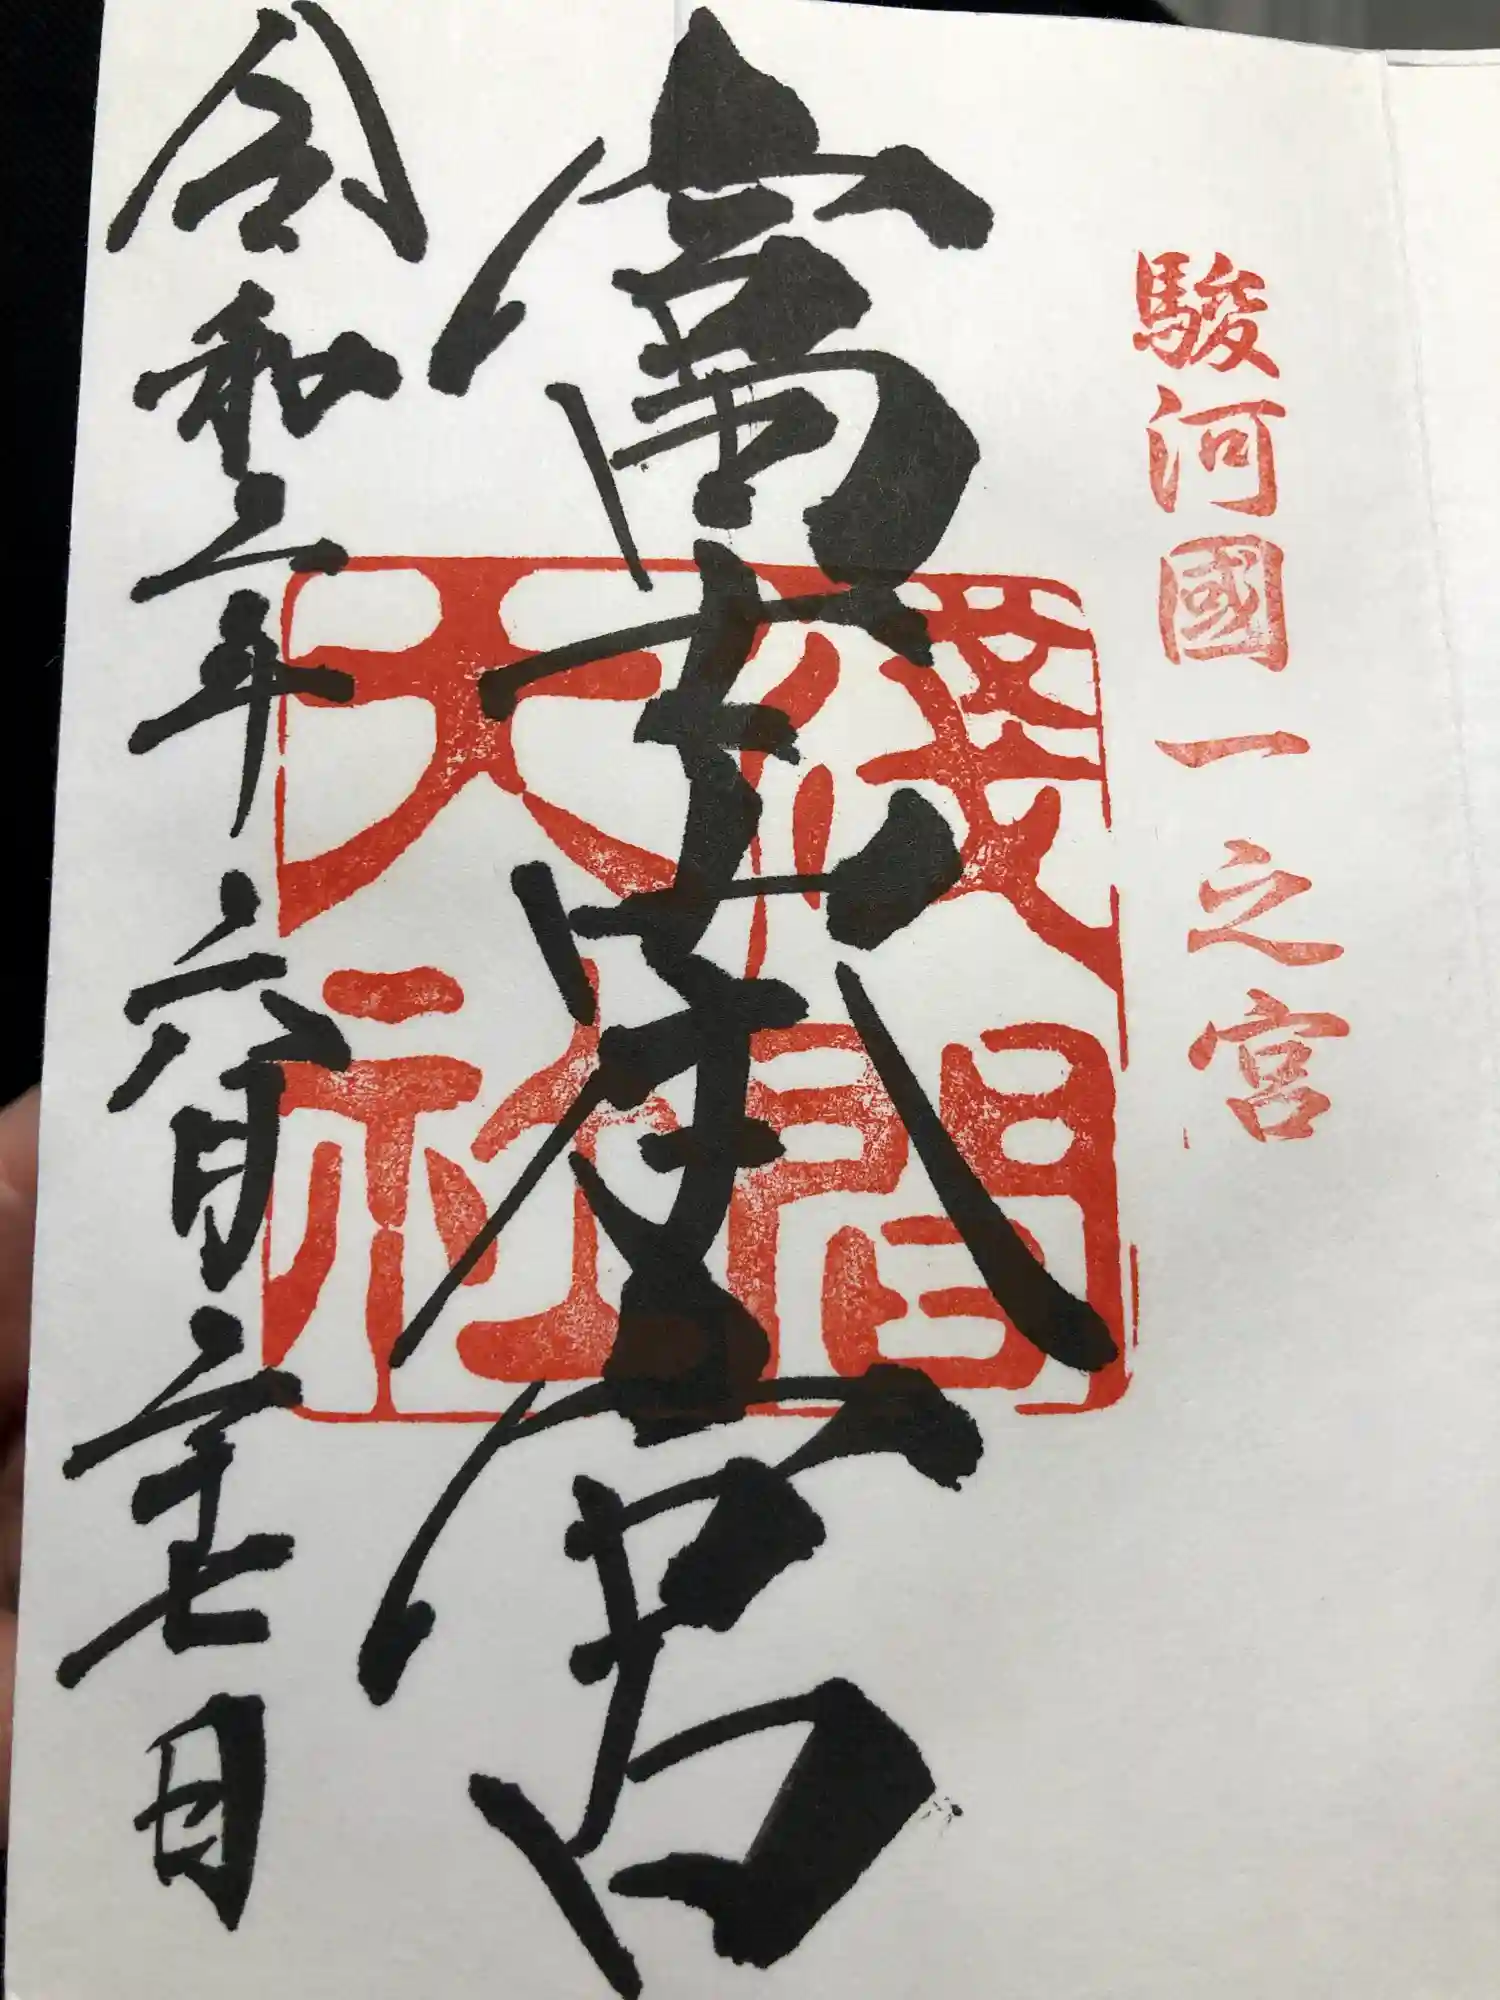 駿河國一之宮
富士本宮
淺間大社
令和二年六月二十七日